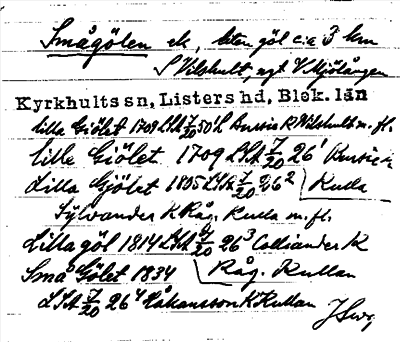 Smågölen ek, liten göl c:a 3 km
S Vilshult, ngt V Mjölången
Kyrkhults sn, Listers hd, Blek. län
lilla Giölet 1708 LSA 7/20 50¹ L Bussie K Vilshult m. fl.
lille Giölet 1709 LSA 7/20 26¹ Bussie K
Lilla Gjölet 1805 LSA 7/20 26² Kulla
Sylvander K Råg. Kulla m. fl.
Lilla göl 1814 LSA 7/20 26³ Colliander K
Små Gölet 1834 Råg. Kullan
LSA 7/20 26⁴ Håkansson K Kullan